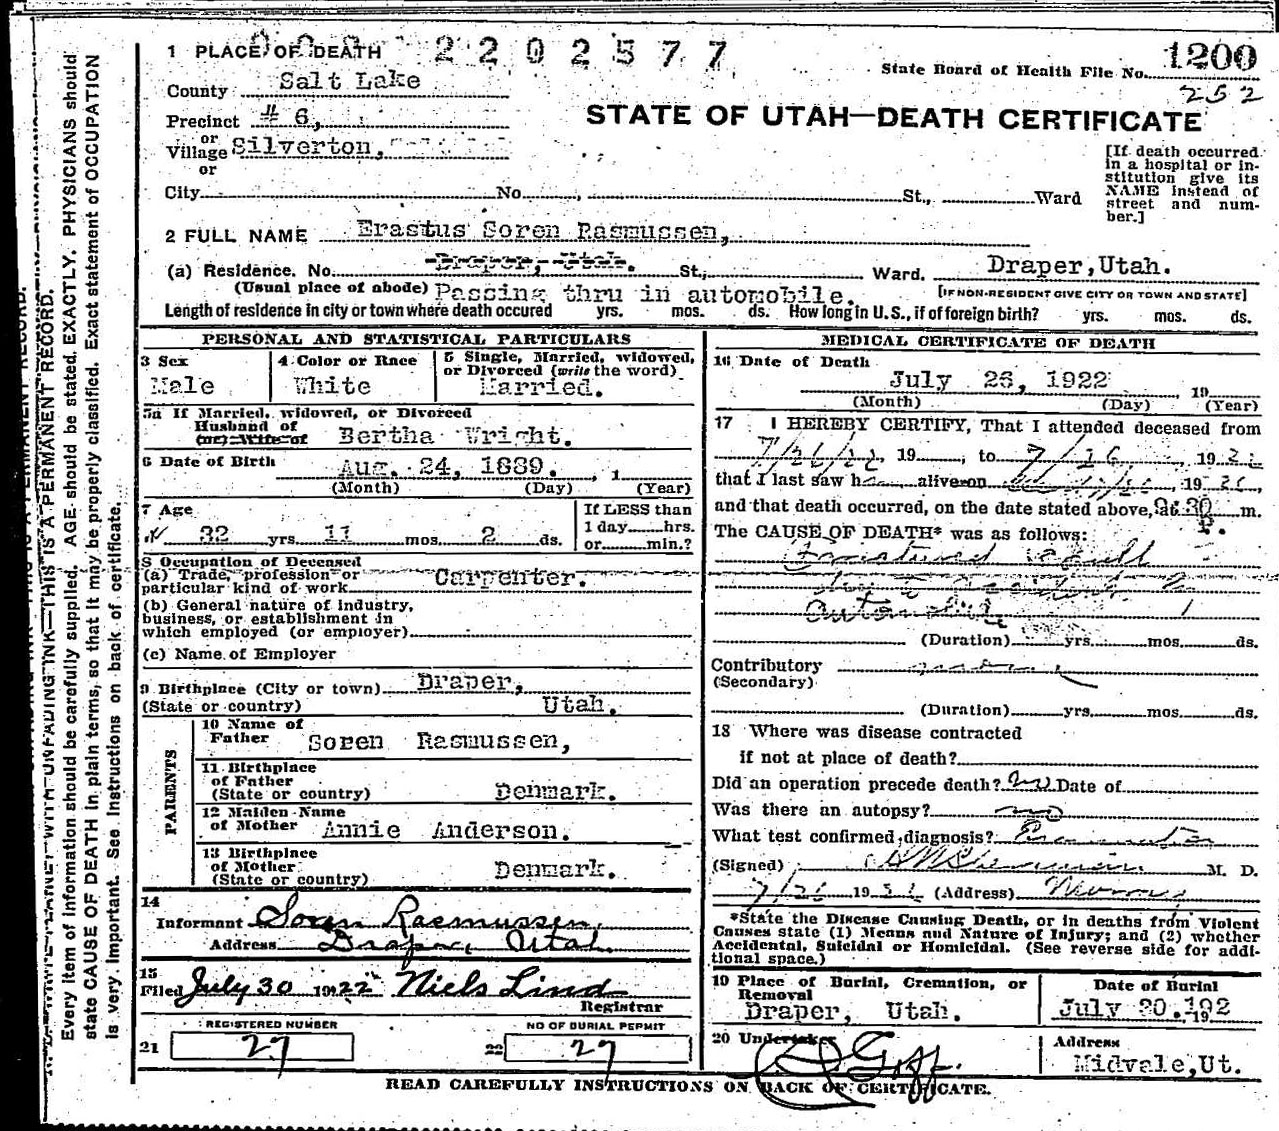 1 PLACE OF DEATH 2202577
State Board of Health File No. 1200
252
County Salt Lake
Precinct # 6,
or
Village Silverton,
or
City No. St., Ward
STATE OF UTAH—DEATH CERTIFICATE
[If death occurred in a hospital or institution give its NAME instead of street and number.]
2 FULL NAME Erastus Soren Rasmussen,
(a) Residence. No. Draper, Utah. St., Ward. Draper,Utah.
(Usual place of abode) Passing thru in automobile. [IF NON-RESIDENT GIVE CITY OR TOWN AND STATE]
Length of residence in city or town where death occured yrs. mos. ds. How long in U.S., if of foreign birth? yrs. mos. ds.
PERSONAL AND STATISTICAL PARTICULARS
3 Sex
Male
4 Color or Race
White
5 Single, Married, widowed, or Divorced (write the word)
Married.
5a If Married, widowed, or Divorced
Husband of
(or) Wife of Bertha Wright.
6 Date of Birth Aug. 24, 1889. , 1
(Month) (Day) (Year)
7 Age
32 yrs. 11 mos. 2 ds.
If LESS than
1 day hrs.
or min.?
8 Occupation of Deceased
(a) Trade, profession or
particular kind of work Carpenter.
(b) General nature of industry,
business, or establishment in
which employed (or employer)
(c) Name of Employer
9 Birthplace (City or town) Draper,
(State or country) Utah.
PARENTS
10 Name of
Father Soren Rasmussen,
11 Birthplace
of Father
(State or country) Denmark.
12 Maiden Name
of Mother Annie Anderson.
13 Birthplace
of Mother
(State or country) Denmark.
14
Informant Soren Rasmussen,
Address Draper, Utah
15
Filed July 30 1922 Niels Lind
Registrar
REGISTERED NUMBER
21 27
NO OF BURIAL PERMIT
22 27
MEDICAL CERTIFICATE OF DEATH
16 Date of Death
July 26, 1922 19
(Month) (Day) (Year)
17 I HEREBY CERTIFY, That I attended deceased from
7/26/22, 19 , to 7/26 , 1922
that I last saw h alive on 19
and that death occurred, on the date stated above, at 9:30 m.
P.
The CAUSE OF DEATH* was as follows:
Fractured Skull
Automobile
(Duration) yrs. mos. ds.
Contributory
(Secondary)
(Duration) yrs. mos. ds.
18 Where was disease contracted
if not at place of death?
Did an operation precede death? no Date of
Was there an autopsy? no
What test confirmed diagnosis?
(Signed) M. D.
7/26 1922 (Address) Murray
*State the Disease Causing Death, or in deaths from Violent
Causes state (1) Means and Nature of Injury; and (2) whether
Accidental, Suicidal or Homicidal. (See reverse side for addi-
tional space.)
19 Place of Burial, Cremation, or
Removal
Draper, Utah.
Date of Burial
July 30. 192
19
20 Undertaker
Goff.
Address
Midvale,Ut.
READ CAREFULLY INSTRUCTIONS ON BACK OF CERTIFICATE.
THIS IS A PERMANENT RECORD.
Every item of information should be carefully supplied. AGE should be stated EXACTLY. PHYSICIANS should
state CAUSE OF DEATH in plain terms, so that it may be properly classified. Exact statement of OCCUPATION
is very important. See instructions on back of certificate.